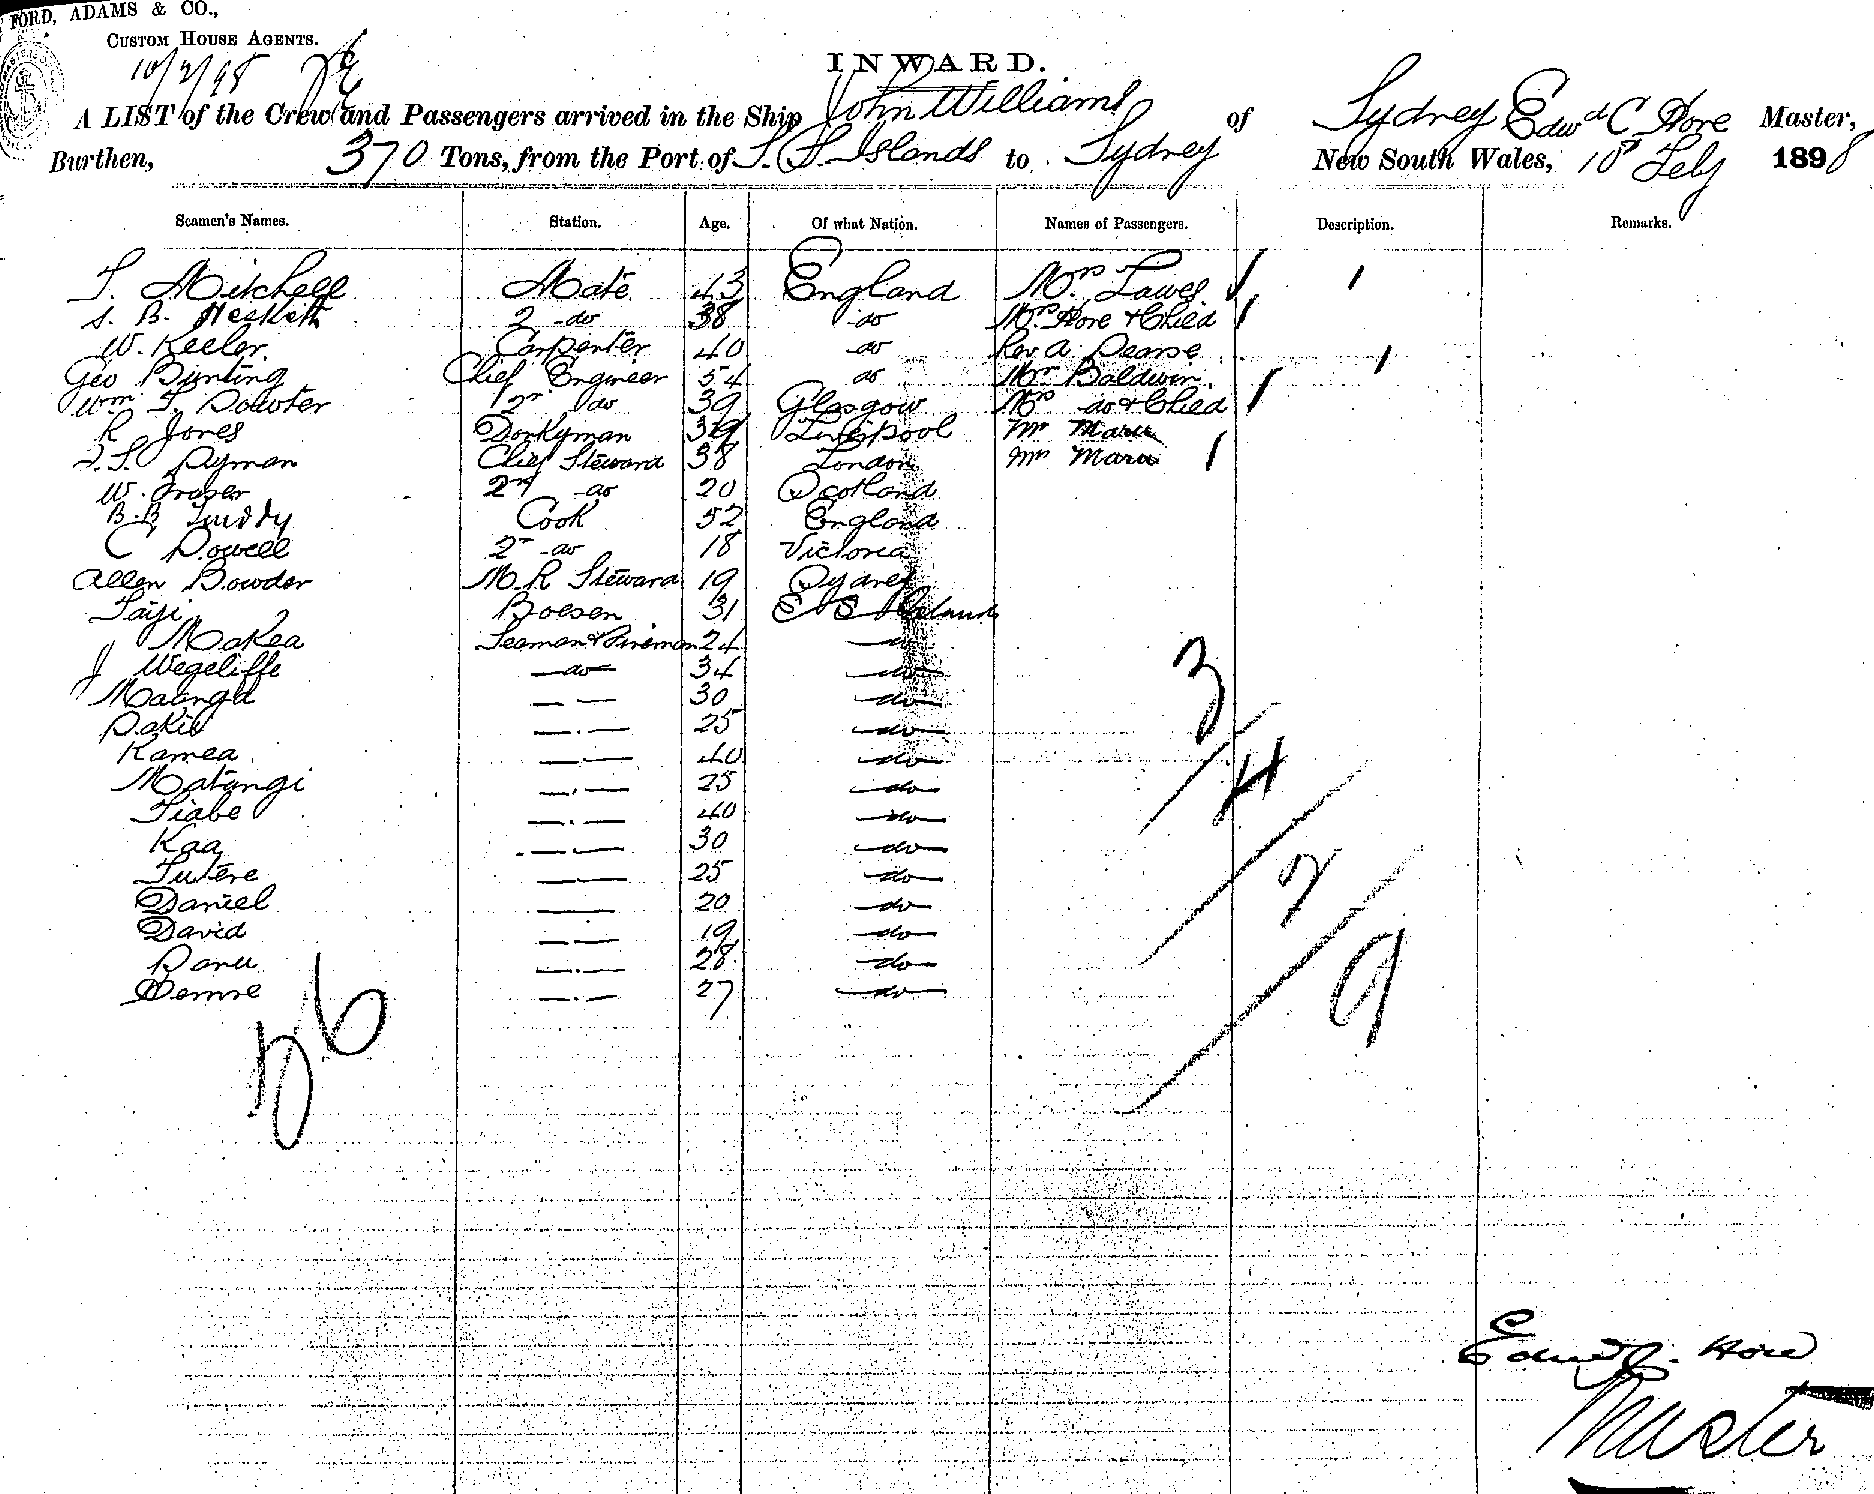 FORD, ADAMS & CO.,
CUSTOM HOUSE AGENTS.
10/2/98
INWARD.
A LIST of the Crew and Passengers arrived in the Ship John Williams of Sydney Edwd C Hore Master,
Burthen, 370 Tons, from the Port of S. S. Islands to Sydney New South Wales, 10th Feby 1898
Seamen's Names. Station. Age. Of what Nation. Names of Passengers. Description. Remarks.
T. Mitchell Mate 43 England Mrs Lawes 1
S. B. Hesketh 2 do 38 do Mrs Hore & Child
W. Keeler Carpenter 40 do Rev A. Pearse 1
Geo Bunting Chief Engineer 54 do Mr Baldwin
Wm T. Powter 2nd do 39 Glasgow Mrs do & Child
R Jones Donkyman 39 Liverpool Mr Maru
Pyman Chief Steward 38 London Mrs Maru
W. Fraser 2nd do 20 Scotland
B. B. Tuddy Cook 52 England
C Powell 2nd do 18 Victoria
Allen Bowder M. R Steward 19 Sydney
Taiji Boesen 31 S S Islands
Makea Seaman & Fireman 24 do
J Wegeliffe do 34 do
Maanga 30 do
Pakie 25 do
Kamea 40 do
Matangi 25 do
Tiabe 40 do
Kaa 30 do
Tutere 25 do
Daniel 20 do
David 19 do
Paru 28 do
27 do
3
4
2
9
26
Edwd C. Hore
Master